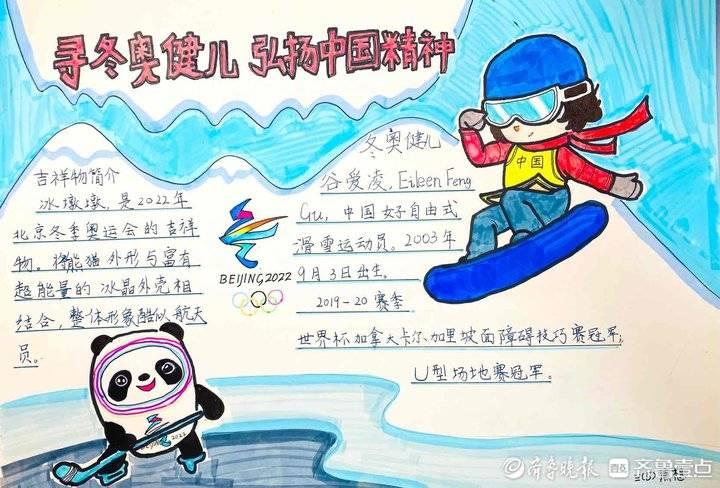 寻冬奥健儿 弘扬中国精神
吉祥物简介
冰墩墩,是2022年
北京冬季奥运会的吉祥
物。将熊猫外形与富有
超能量的冰晶外壳相
结合,整体形象酷似航天
员。
BEIJING 2022
冬奥健儿
谷爱凌,Eileen Feng
Gu,中国女子自由式
滑雪运动员。2003年
9月3日出生。
2019-20赛季
世界杯加拿大卡尔加里坡面障碍技巧赛冠军,
U型场地赛冠军。
中国
齐鲁晚报 齐鲁壹点